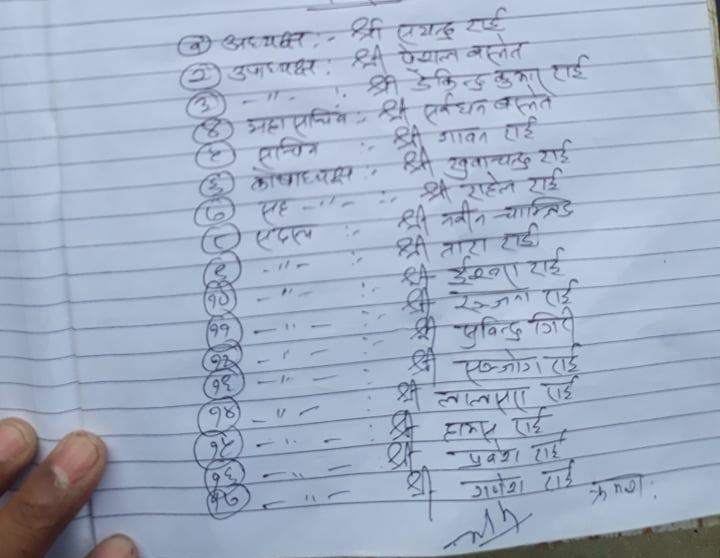 १ अध्यक्ष :- श्री राजेन्द्र राई
२ उपाध्यक्ष : श्री पेशल बस्नेत
३ -"- : श्री डेकेन्द्र कुमार राई
४ महासचिव :- श्री सर्वधन बस्नेत
५ सचिव :- श्री गगन राई
६ कोषाध्यक्ष :- श्री खुवानचन्द्र राई
७ सह -"- :- श्री राहेल राई
८ सदस्य :- श्री नवीन चाम्लिङ
९ -"- :- श्री तारा राई
१० -"- : श्री ईश्वरा राई
११ -"- : श्री रञ्जना राई
१२ -"- : श्री पुविन्द्र गिरी
१३ -"- : श्री सञ्जोग राई
१४ -"- : श्री लालसरा राई
१५ -"- : श्री हामस राई
१६ -"- : श्री प्रवेश राई
१७ -"- श्री गणेश राई
क्रमश: